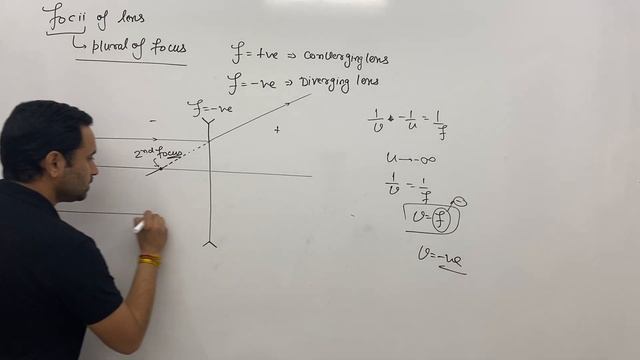 focii of lens
plural of focus
f = +ve ⇒ Converging lens
f = -ve ⇒ Diverging lens
f = -ve
-
+
2nd focus
1/v - 1/u = 1/f
u → -∞
1/v = 1/f
v = f
-
v = -ve